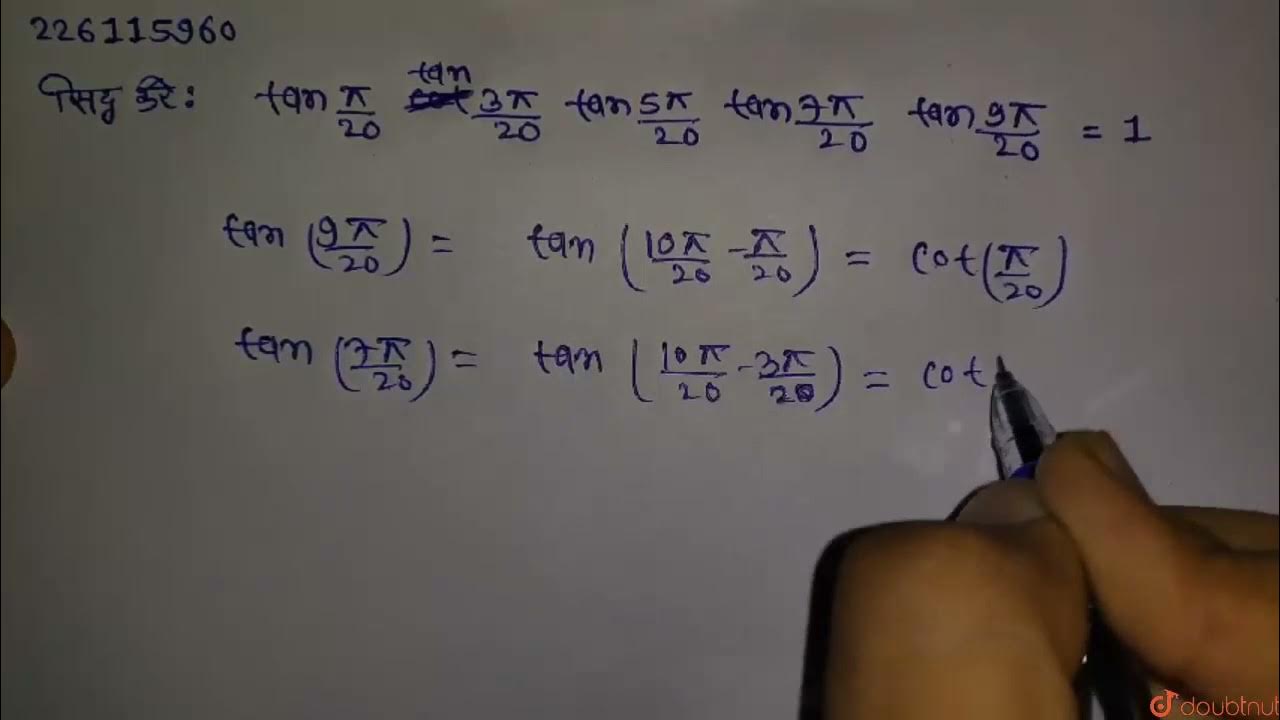 226115960
सिद्ध करें: tan π/20 tan 3π/20 tan 5π/20 tan 7π/20 tan 9π/20 = 1
tan (9π/20) = tan (10π/20 - π/20) = cot (π/20)
tan (7π/20) = tan (10π/20 - 3π/20) = cot
doubtnut